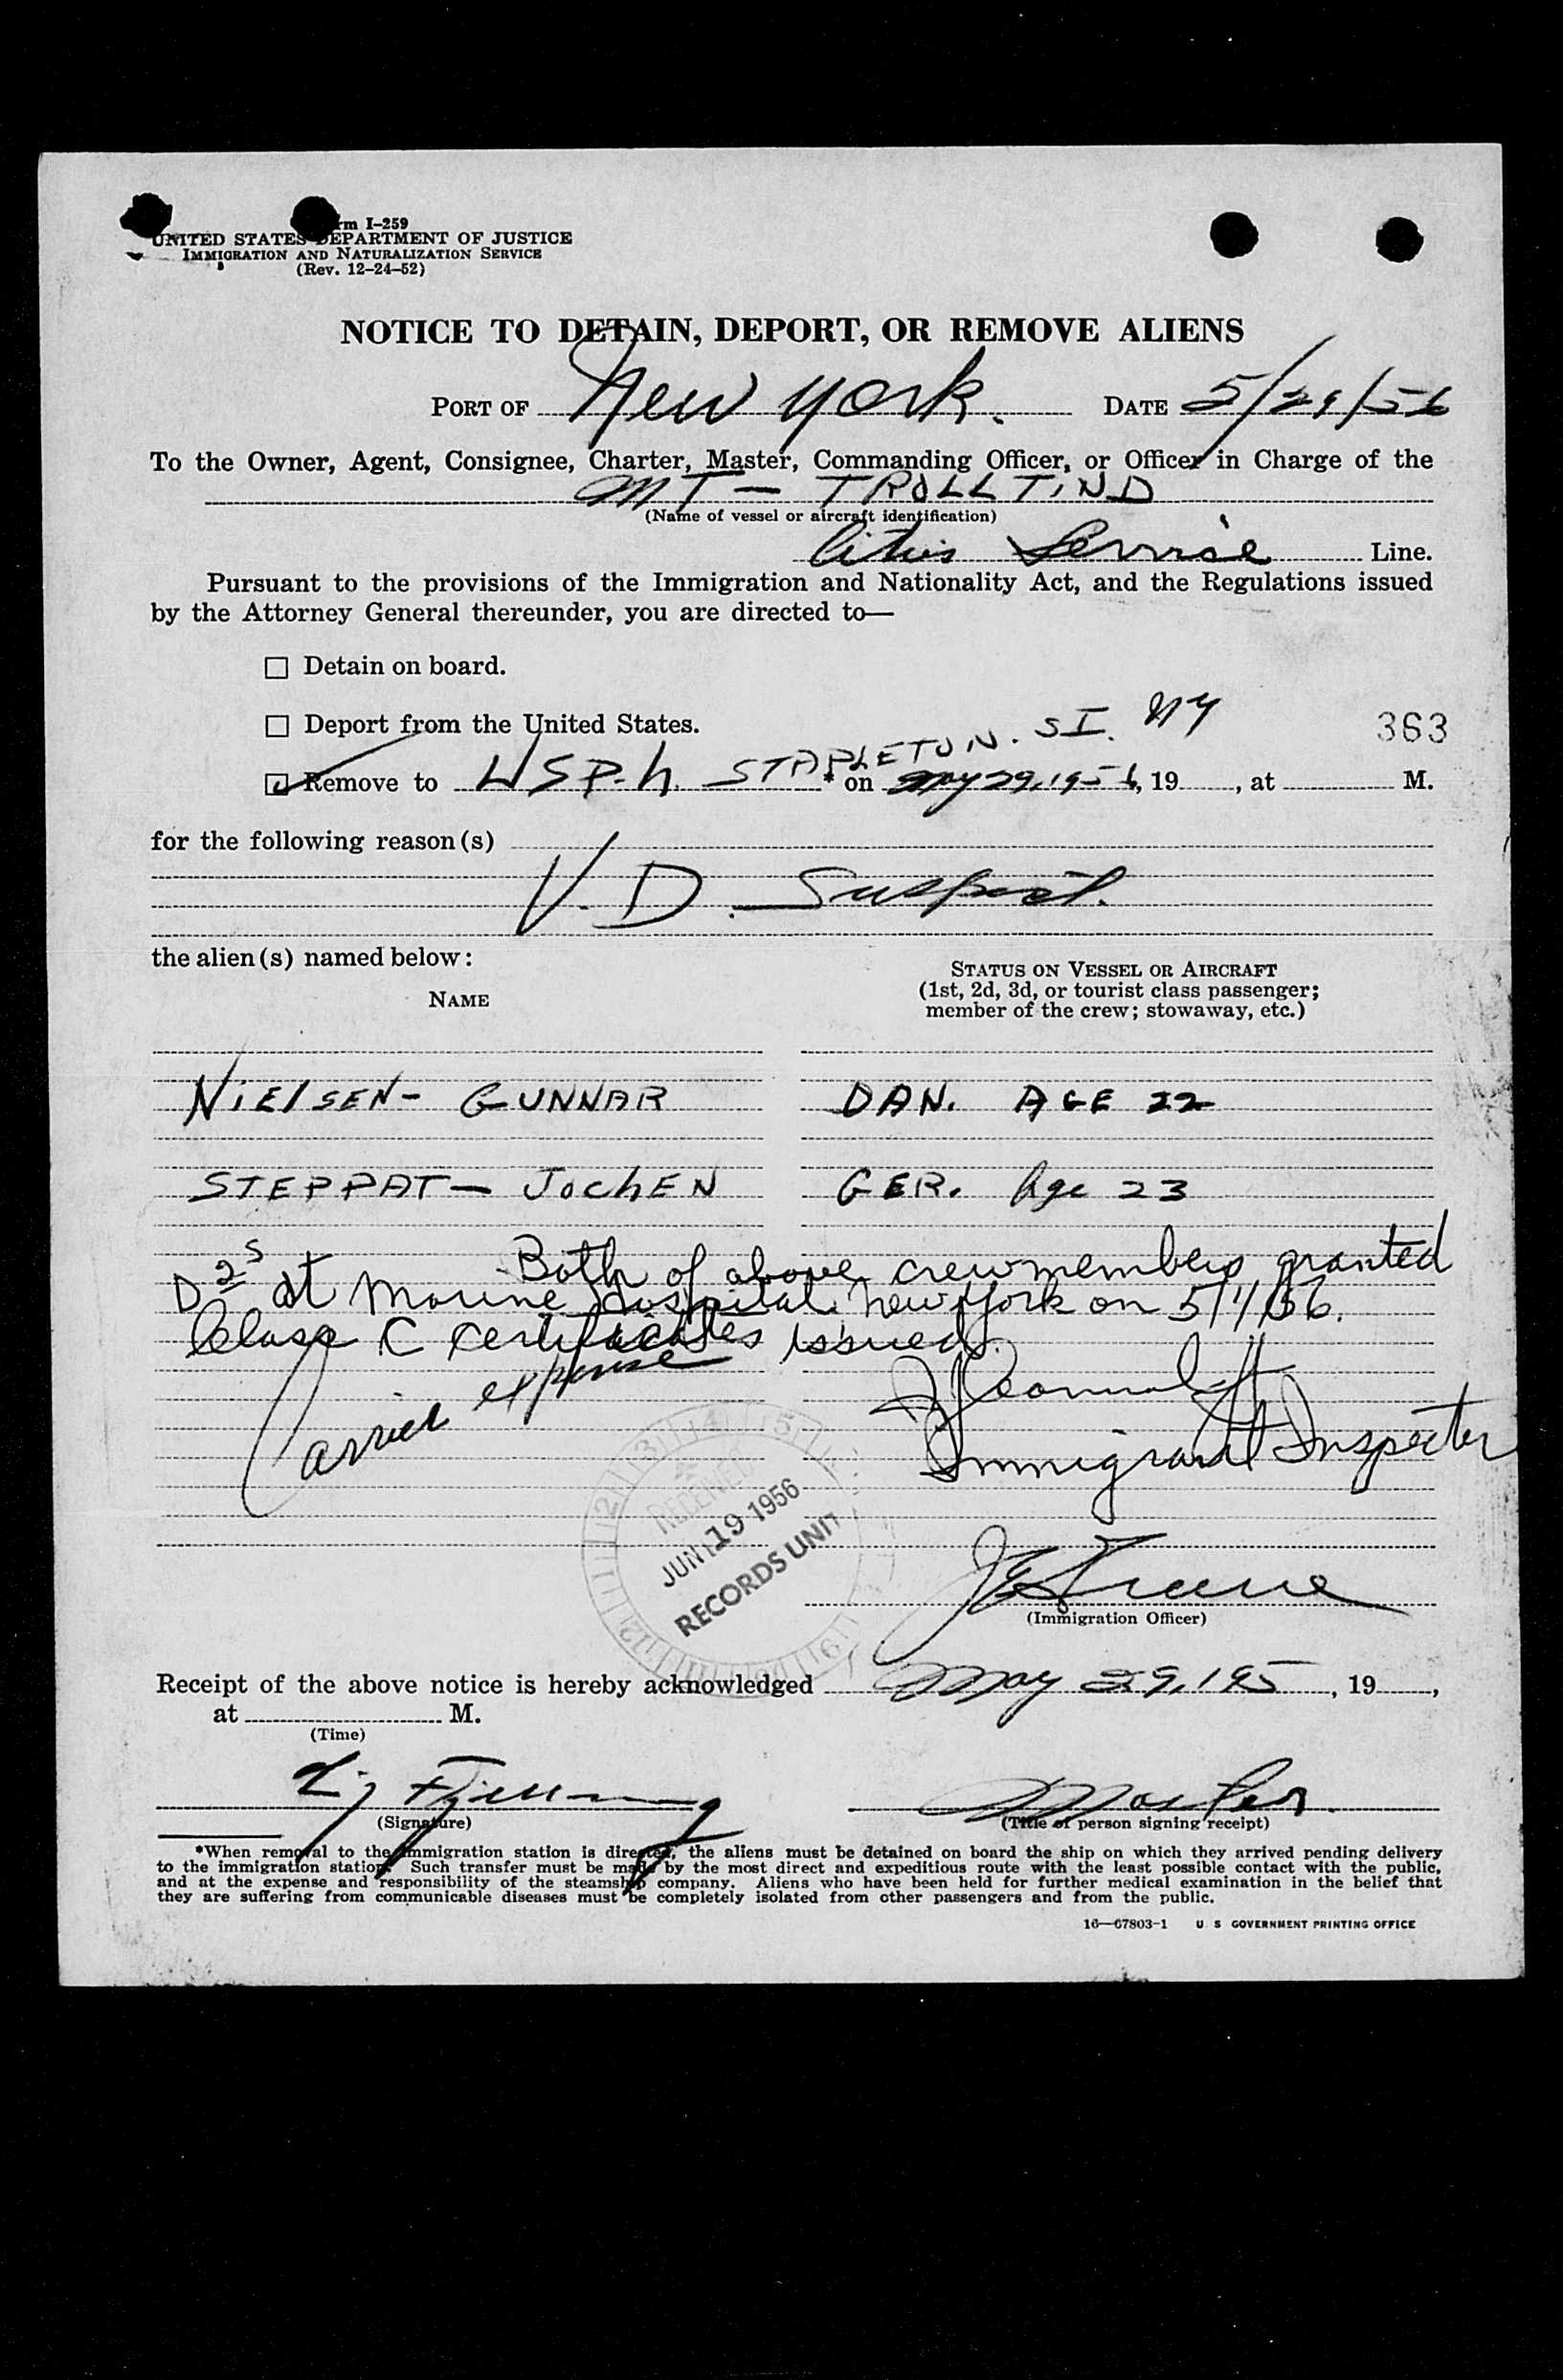 rm I-259
UNITED STATES DEPARTMENT OF JUSTICE
IMMIGRATION AND NATURALIZATION SERVICE
(Rev. 12-24-52)
NOTICE TO DETAIN, DEPORT, OR REMOVE ALIENS
PORT OF New York. DATE 5/29/56
To the Owner, Agent, Consignee, Charter, Master, Commanding Officer, or Officer in Charge of the
MT - TROLLTIND
(Name of vessel or aircraft identification)
Cities Service Line.
Pursuant to the provisions of the Immigration and Nationality Act, and the Regulations issued
by the Attorney General thereunder, you are directed to—
☐ Detain on board.
☐ Deport from the United States.
363
☑ Remove to USP.h. STAPLETON. SI. NY * on May 29, 1956, 19 , at M.
for the following reason(s)
V.D. Suspect.
the alien(s) named below:
NAME
STATUS ON VESSEL OR AIRCRAFT
(1st, 2d, 3d, or tourist class passenger;
member of the crew; stowaway, etc.)
NiElSEN- GUNNAR DAN. AGE 22
STEPPAT- JochEN GER. Age 23
Both of above crewmembers granted
D2s at Marine Hospital New York on
Class C Certificates issued.
Carrier expense
Immigrant Inspector
RECEIVED
JUN 19 1956
RECORDS UNIT
(Immigration Officer)
Receipt of the above notice is hereby acknowledged May 29, 195 , 19 ,
at M.
(Time)
Master.
(Signature) (Title of person signing receipt)
*When removal to the immigration station is directed, the aliens must be detained on board the ship on which they arrived pending delivery
to the immigration station. Such transfer must be made by the most direct and expeditious route with the least possible contact with the public,
and at the expense and responsibility of the steamship company. Aliens who have been held for further medical examination in the belief that
they are suffering from communicable diseases must be completely isolated from other passengers and from the public.
16—67803-1 U S GOVERNMENT PRINTING OFFICE